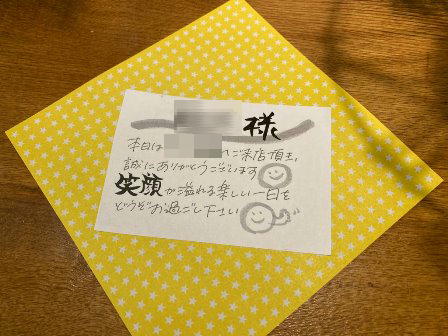 様
本日は
へご来店頂き、
誠にありがとうございます
笑顔が溢れる楽しい一日を
どうぞお過ごし下さい